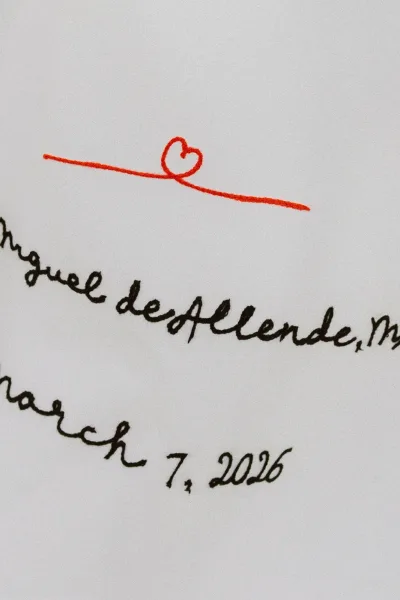 Miguel de Allende,
March 7, 2026